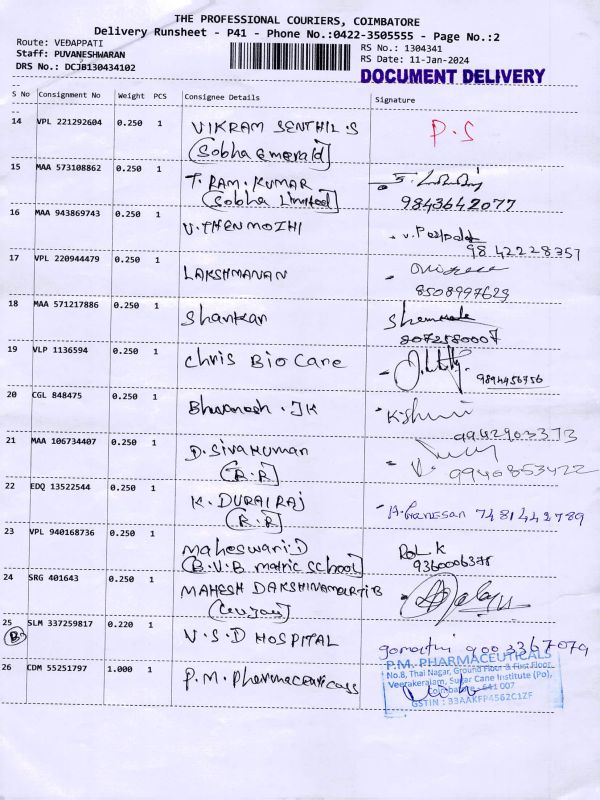 THE PROFESSIONAL COURIERS, COIMBATORE
Delivery Runsheet - P41 - Phone No.:0422-3505555 - Page No.:2
Route: VEDAPPATI
Staff: PUVANESHWARAN
DRS No.: DCJB130434102
RS No.: 1304341
RS Date: 11-Jan-2024
DOCUMENT DELIVERY
S No Consignment No Weight PCS Consignee Details Signature
14 VPL 221292604 0.250 1 VIKRAM SENTHIL.S P.S
(Sobha Emerald)
15 MAA 573108862 0.250 1 T. RAM. KUMAR
(Sobha Limited) 9843642077
16 MAA 943869743 0.250 1 V.THENMOZHI
9842228351
17 VPL 220944479 0.250 1 LAKSHMANAN
8508997629
18 MAA 571217886 0.250 1 Shankar
8072580007
19 VLP 1136594 0.250 1 Chris Bio Care
9894456756
20 CGL 848475 0.250 1 Bhavanesh.JK
9942903373
21 MAA 106734407 0.250 1 D.Sivakumar
(R.R) 9940853422
22 EDQ 13522544 0.250 1 K. DURAI RAJ
(R.R) 7481442789
23 VPL 940168736 0.250 1 Maheswari.D
(B.V.B matric school) 9360006375
24 SRG 401643 0.250 1 MAHESH DAKSHINAMOURTI B
25 SLM 337259817 0.220 1 V.S.D HOSPITAL gomathi 9003367079
26 CDM 55251797 1.000 1 P.M. Pharmaceuticals
P.M. PHARMACEUTICALS
No.8, Thai Nagar, Ground Floor & First Floor
Veerakeralam, Sugar Cane Institute (Po),
Coimbatore - 641 007
GSTIN : 33AAKFP4562C1ZF